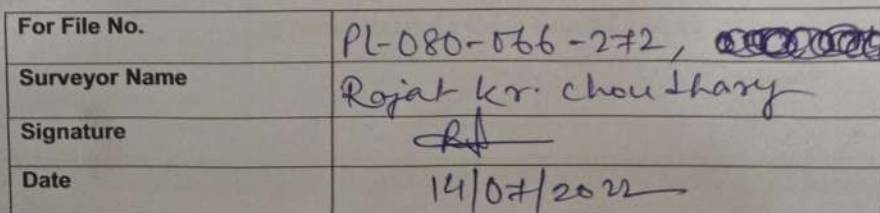 For File No. PL-080-066-272,
Surveyor Name Rajat kr. choudhary
Signature
Date 14/07/2022